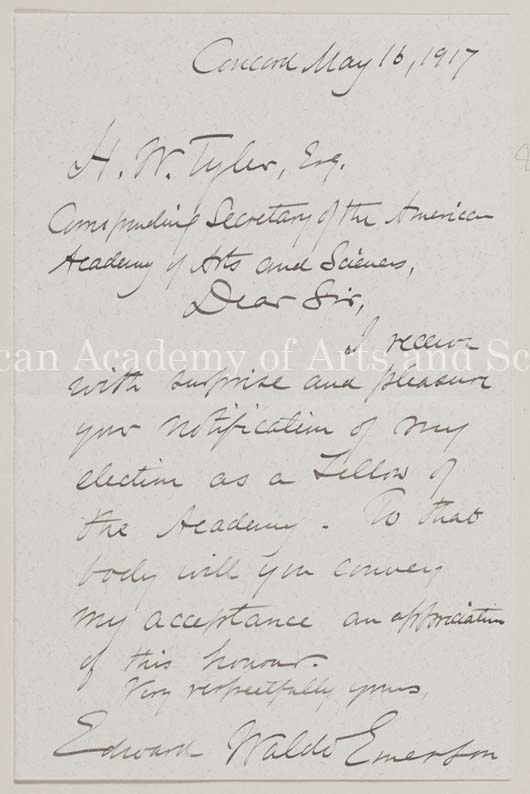 Concord May 16, 1917
H. W. Tyler, Esq.
Corresponding Secretary of the American
Academy of Arts and Sciences,
Dear Sir,
I receive
can Academy of Arts and Sc
with surprise and pleasure
your notification of my
election as a Fellow of
the Academy. To that
body will you convey
my acceptance an appreciation
of this honour.
Very respectfully yours,
Edward Waldo Emerson